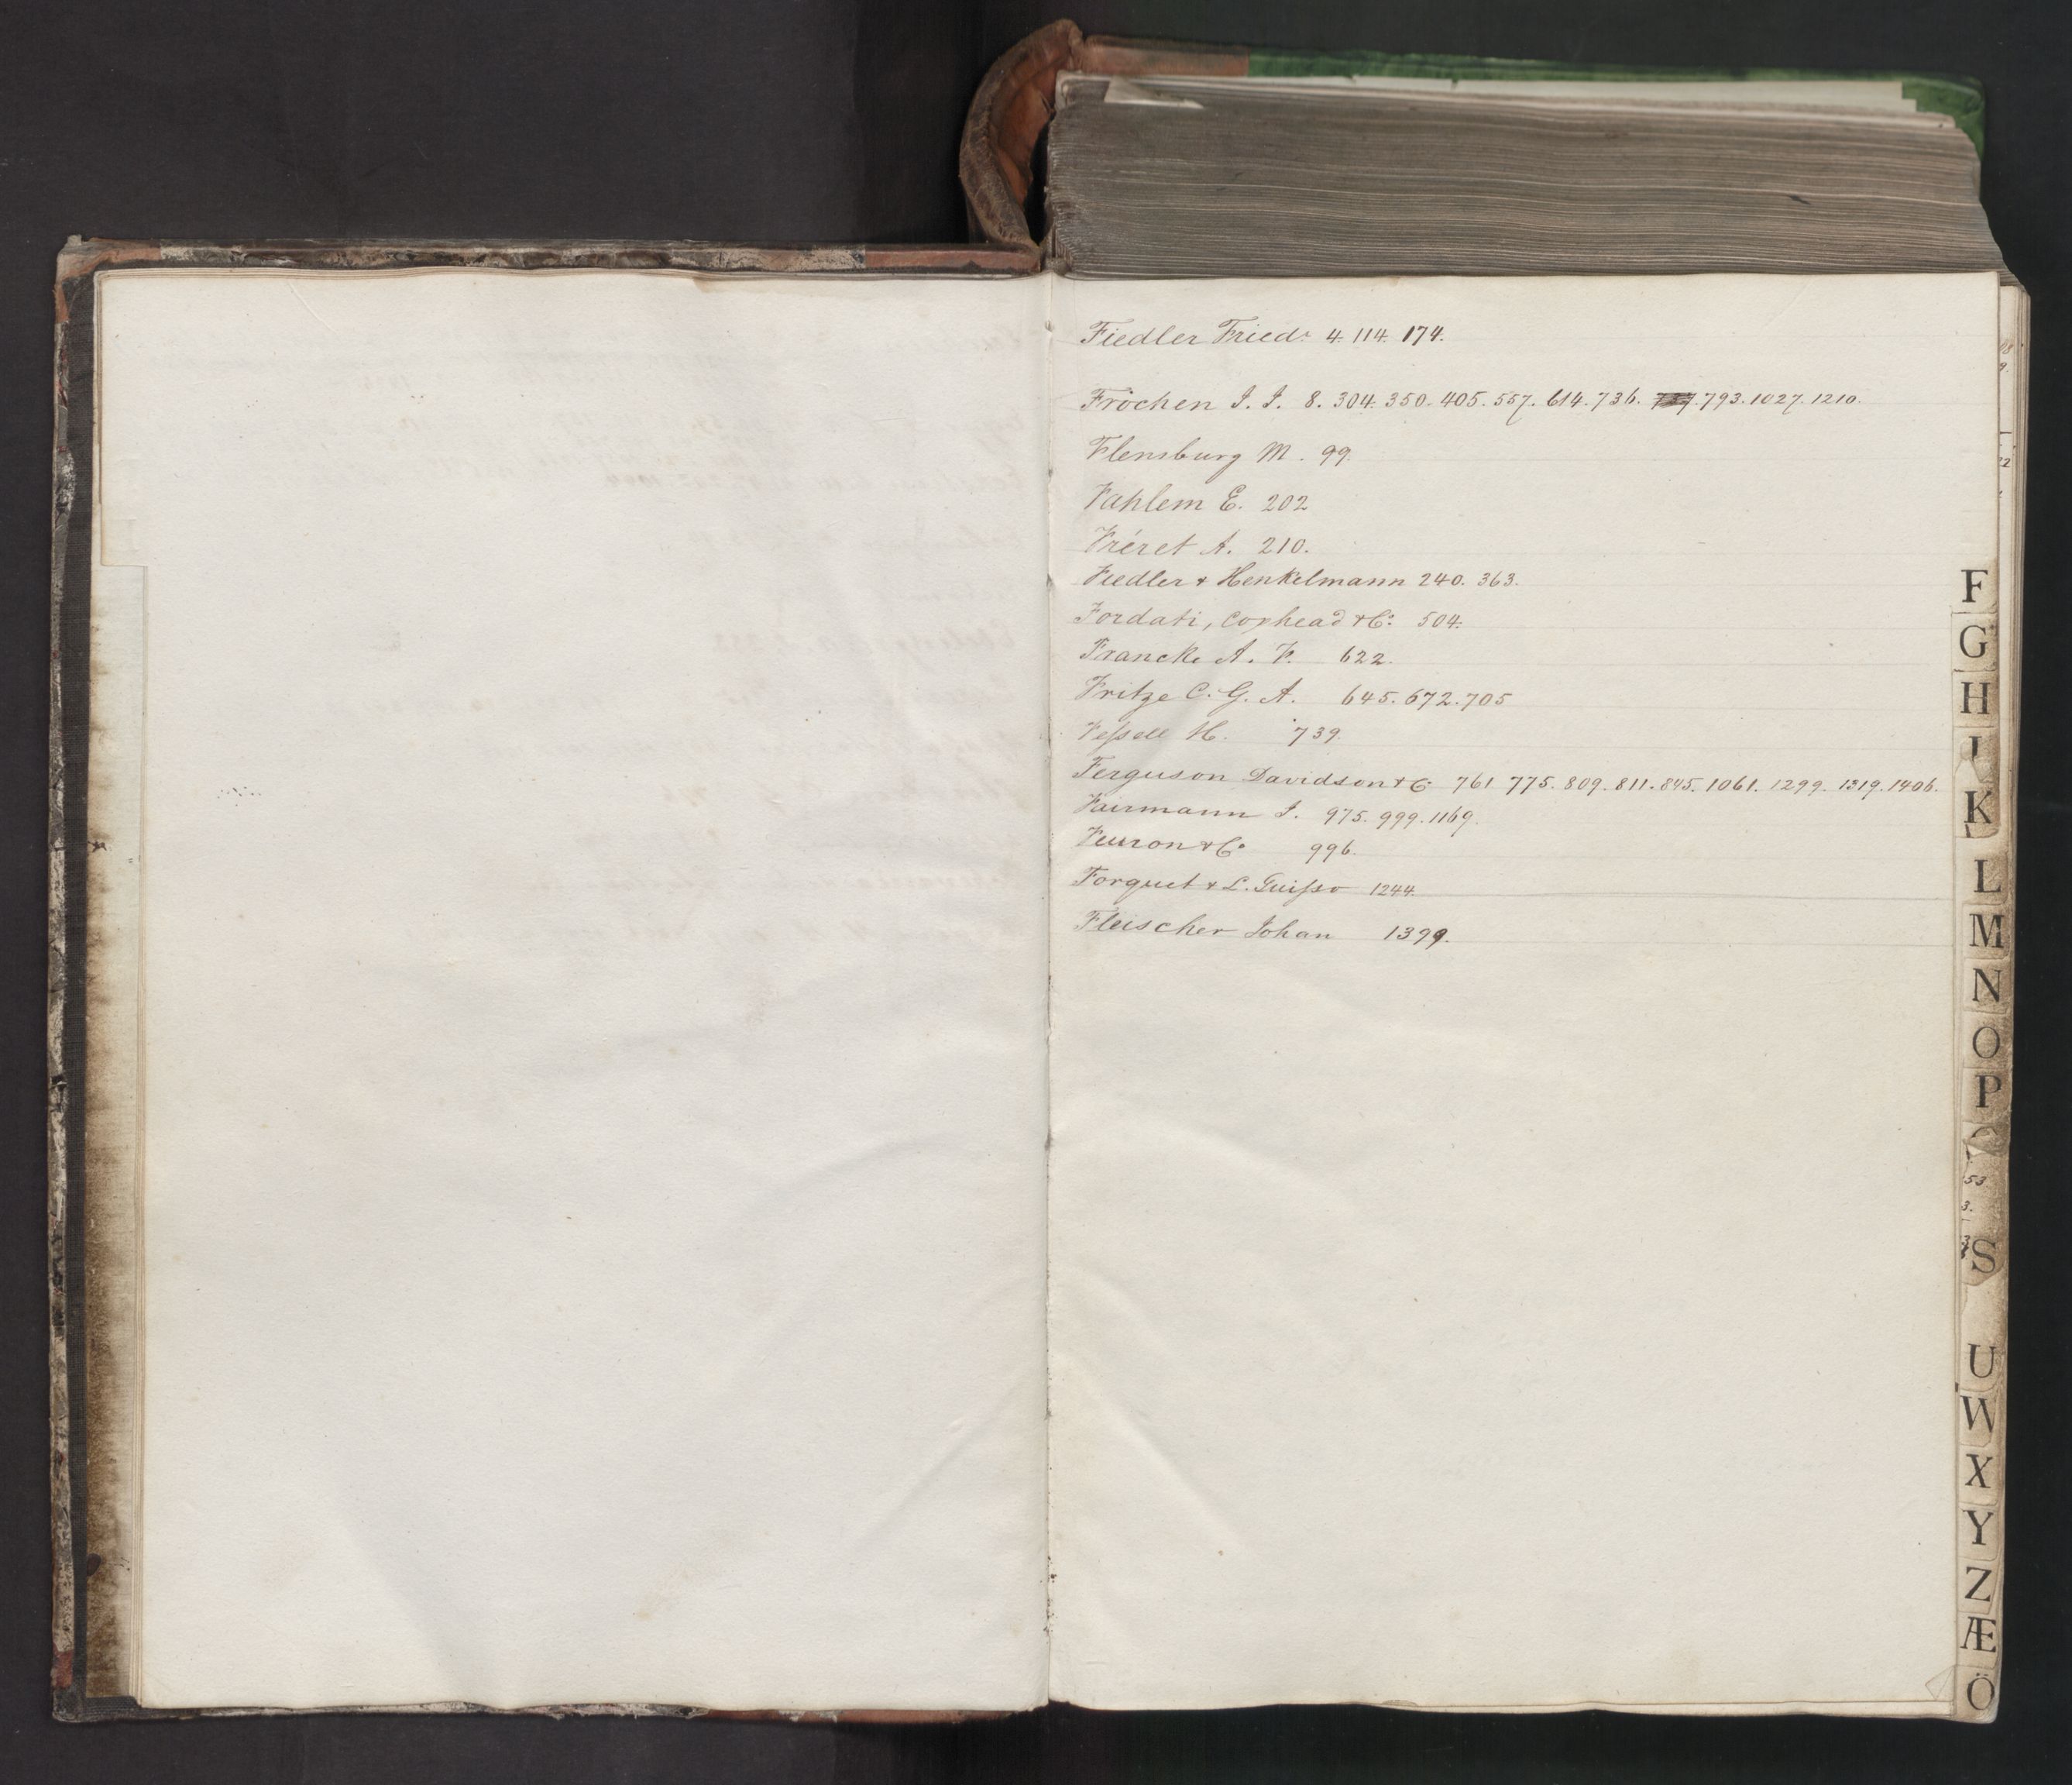 Fiedler Friedr 4. 114. 174.
Fröchen I. I. 8. 304. 350. 405. 557. 614. 736. 793. 1027. 1210.
Flensburg M. 99.
Fahlem E. 202
Fréret A. 210.
Fiedler & Henkelmann 240. 363.
Fordati, Coxhead & Co. 504.
Francke A. F. 622.
Fritze C. G. A. 645. 672. 705
Fessell H. 739.
Ferguson Davidson & C 761 775. 809. 811. 845. 1061. 1299. 1319. 1406.
Fairmann I. 975. 999. 1169.
Feuron & Co 996.
Forquet & L. Guisso 1244.
Fleischer Johan 1399.
F
G
H
I
K
L
M
N
O
P
53
3.
S
U
W
X
Y
Z
Æ
Ö